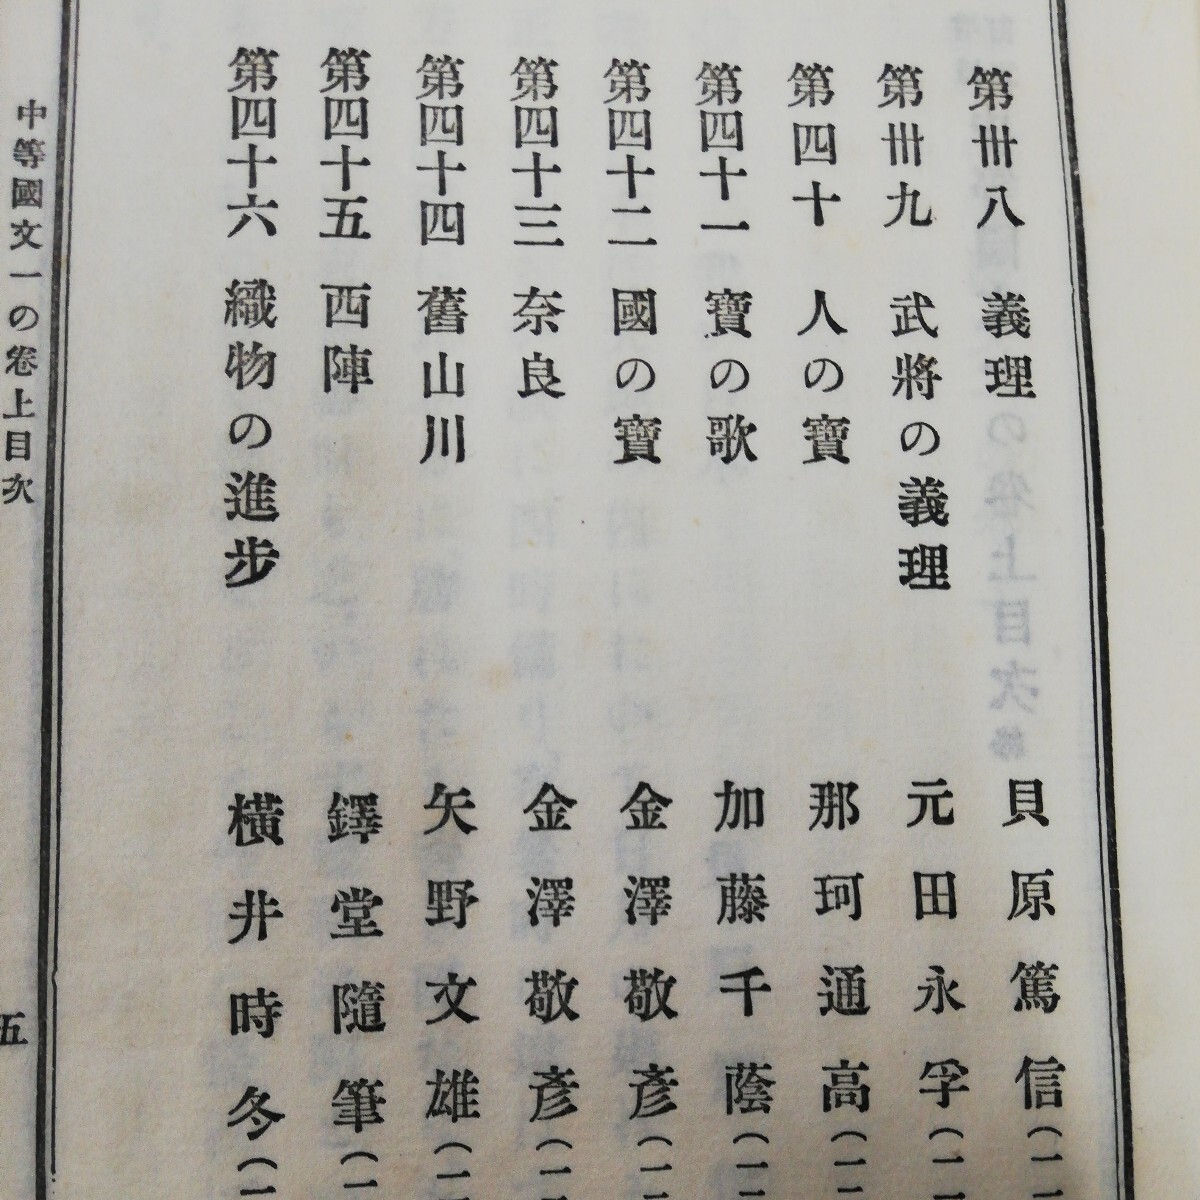 第卌八 義理 貝原篤信
第卌九 武將の義理 元田永孚
第四十 人の寶 那珂通高
第四十一 寶の歌 加藤千蔭
第四十二 國の寶 金澤敬彥
第四十三 奈良 金澤敬彥
第四十四 舊山川 矢野文雄
第四十五 西陣 鐸堂隨筆
第四十六 織物の進步 橫井時冬
中等國文一の卷上目次
五